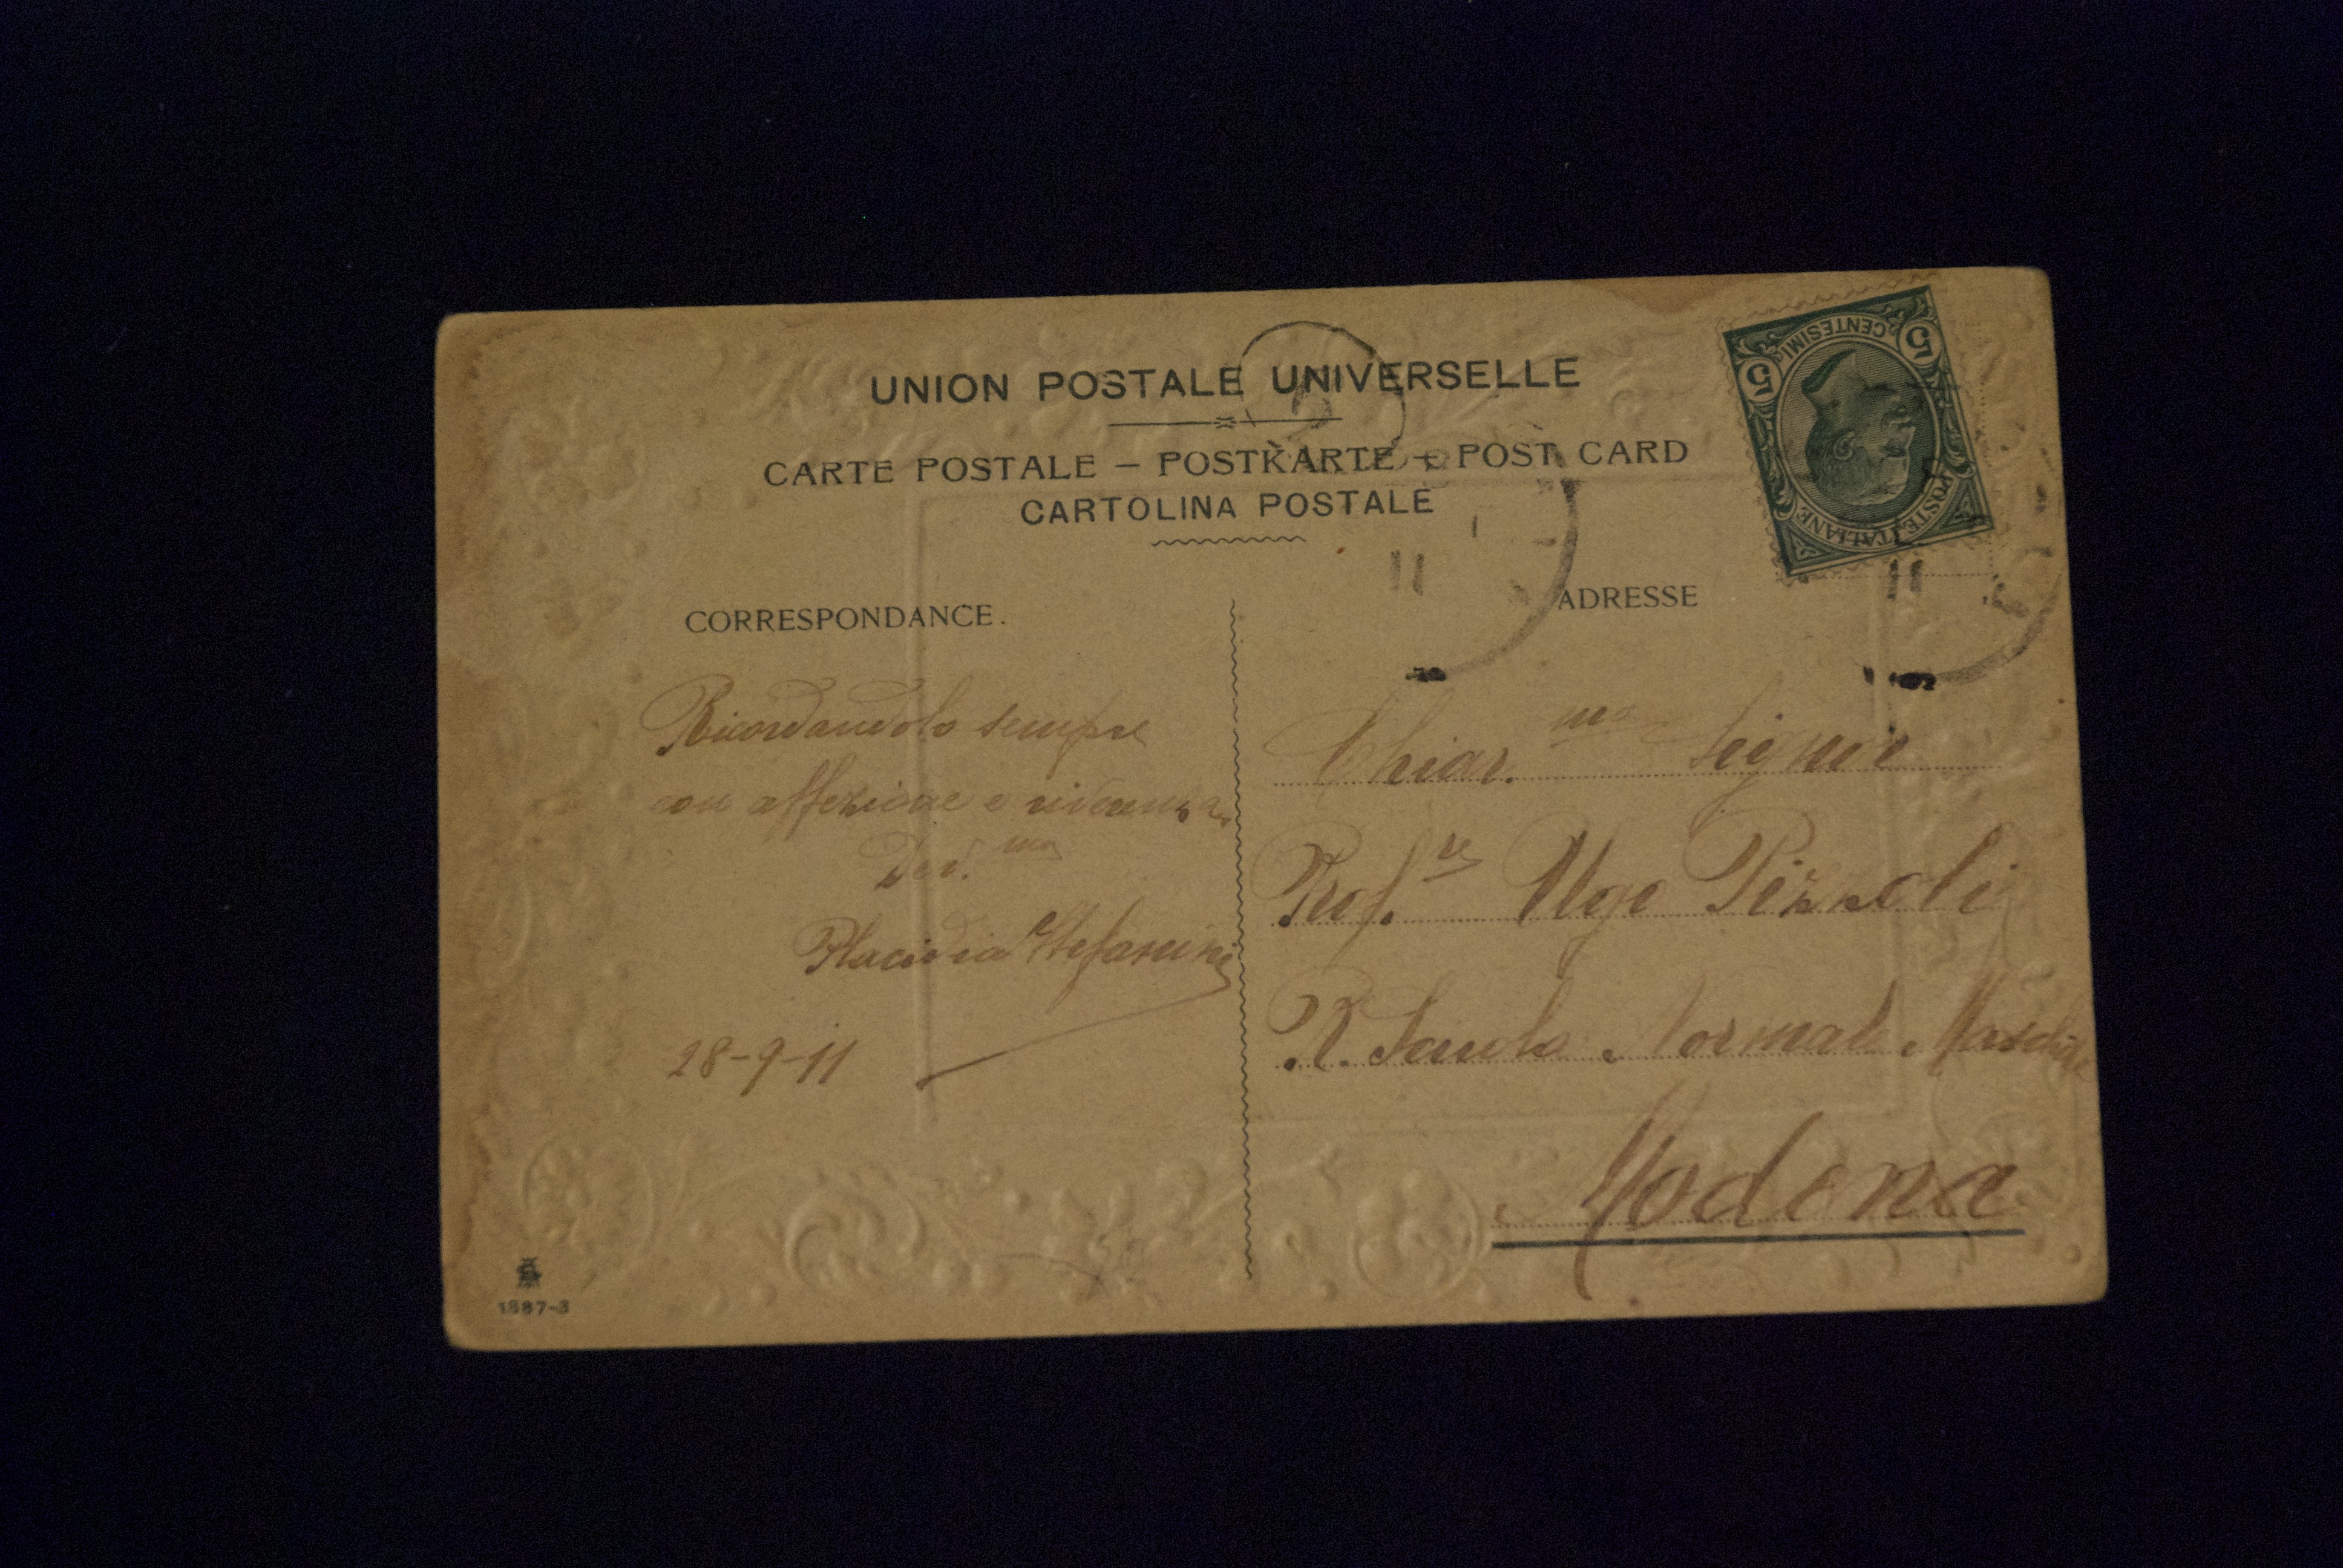 UNION POSTALE UNIVERSELLE
CARTE POSTALE – POSTKARTE – POST CARD
CARTOLINA POSTALE
5 CENTESIMI 5
POSTE ITALIANE
11
11
CORRESPONDANCE.
Ricordandolo sempre
con affezione e riverenza
Dev.ma
Placidia Stefanini
28-9-11
ADRESSE
Chiar.mo Signor
Prof.re Ugo Pizzoli
R. Scuola Normale Maschile
Modena
1887-3